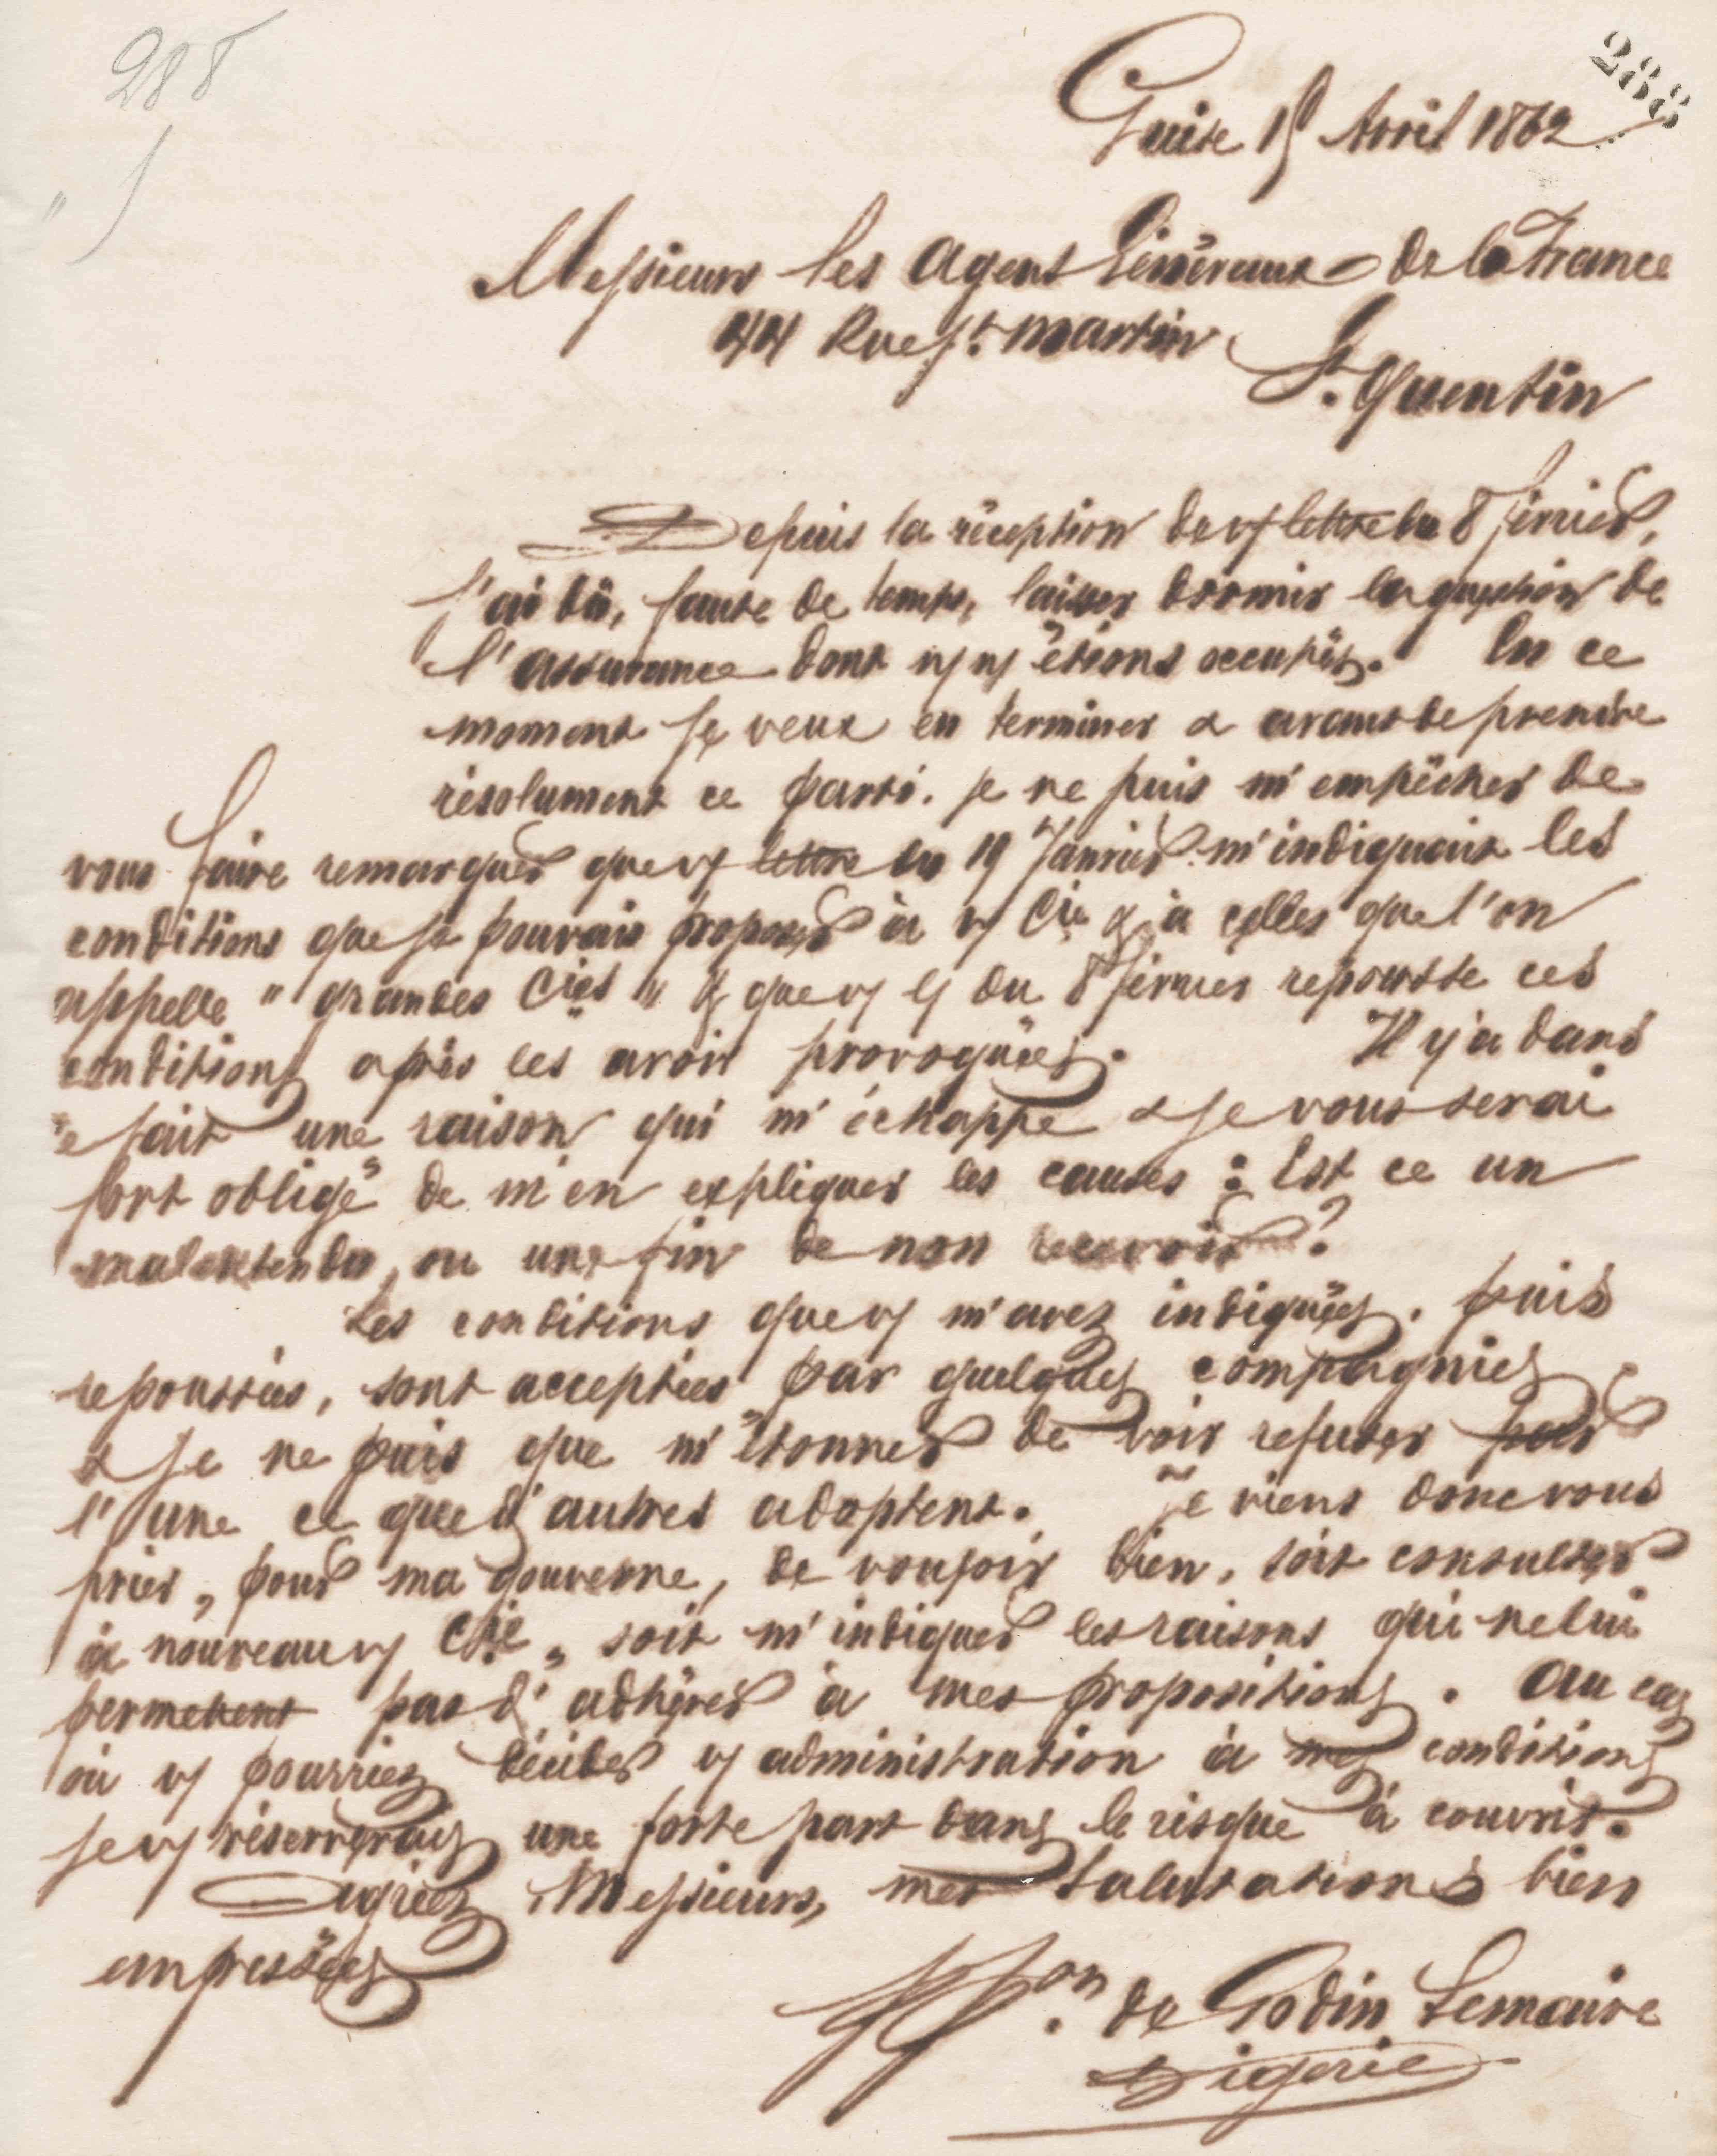 288
288
Guise 15 Avril 1862
" 5
Messieurs les Agent Généraux de la France
44 Rue St. Martin
St. Quentin
Depuis la réception de vf lettre du 8 février,
j'ai dû, faute de temps, laisser dormir la question de
l'assurance dont nf nf étions occupés. En ce
moment je veux en terminer & avant de prendre
résolument ce parti. je ne puis m'empêcher de
vous faire remarquer que vf lettre du 19 Janvier m'indiquait les
conditions que je pouvais proposer à vf Cie & à celles que l'on
appelle " grandes Cies " & que vf lf du 8 février repousse ces
conditions après les avoir provoquées. Il y a dans
ce fait une raison qui m'échappe & je vous serai
fort obligé de m'en expliquer les causes : Est ce un
malentendu, ou une fin de non recevoir ?
Les conditions que vf m'avez indiquées, puis
repoussées, sont acceptées par quelques compagnies
& je ne puis que m'étonner de voir refuser par
l'une ce que d'autres adoptent. Je viens donc vous
prier, pour ma gouverne, de vouloir bien, soit consulter
à nouveau vf Cie, soit m'indiquer les raisons qui ne lui
permettent pas d'adhérer à mes propositions. Au cas
où vf pourriez décider vf administration à mes conditions
je vf réserverais une forte part dans le risque à couvrir.
Agréez, Messieurs, mes salutations bien
empressées
Ppon. de Godin Lemaire